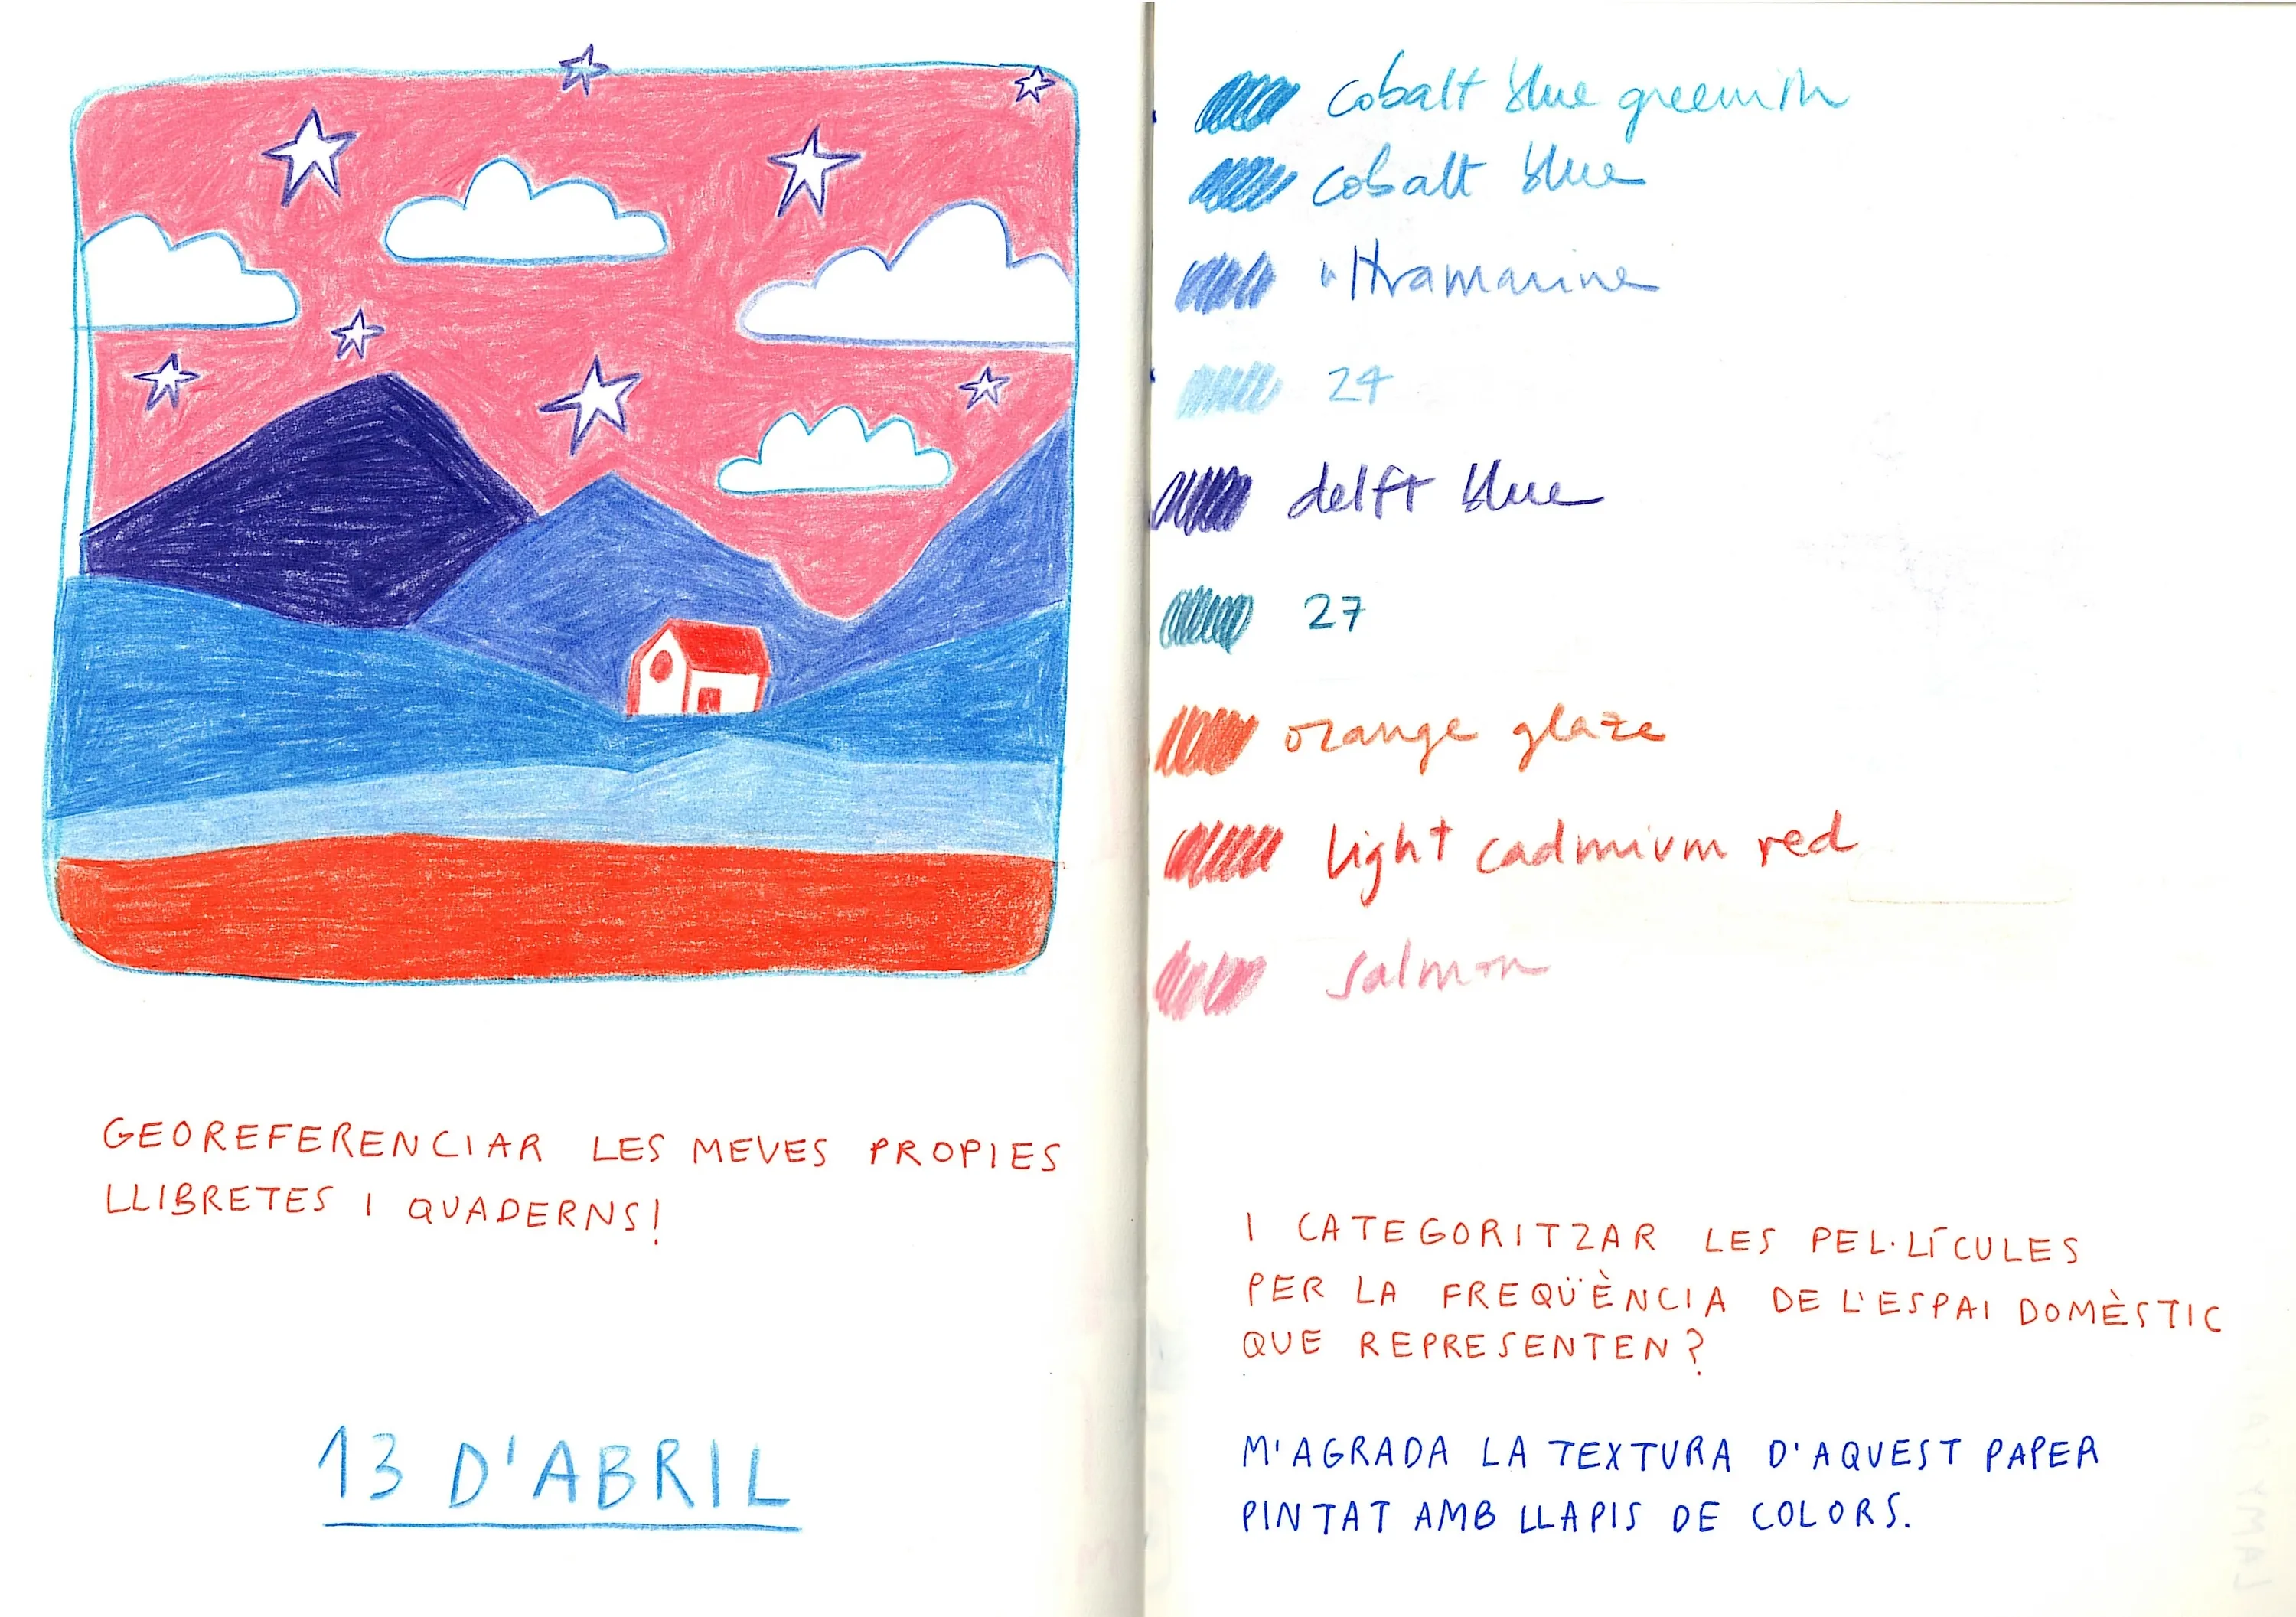 GEOREFERENCIAR LES MEVES PROPIES
LLIBRETES I QUADERNS!
13 D'ABRIL
cobalt blue greenish
cobalt blue
ultramarine
24
delft blue
27
orange glaze
light cadmium red
salmon
I CATEGORITZAR LES PEL·LÍCULES
PER LA FREQÜÈNCIA DE L'ESPAI DOMÈSTIC
QUE REPRESENTEN?
M'AGRADA LA TEXTURA D'AQUEST PAPER
PINTAT AMB LLAPIS DE COLORS.